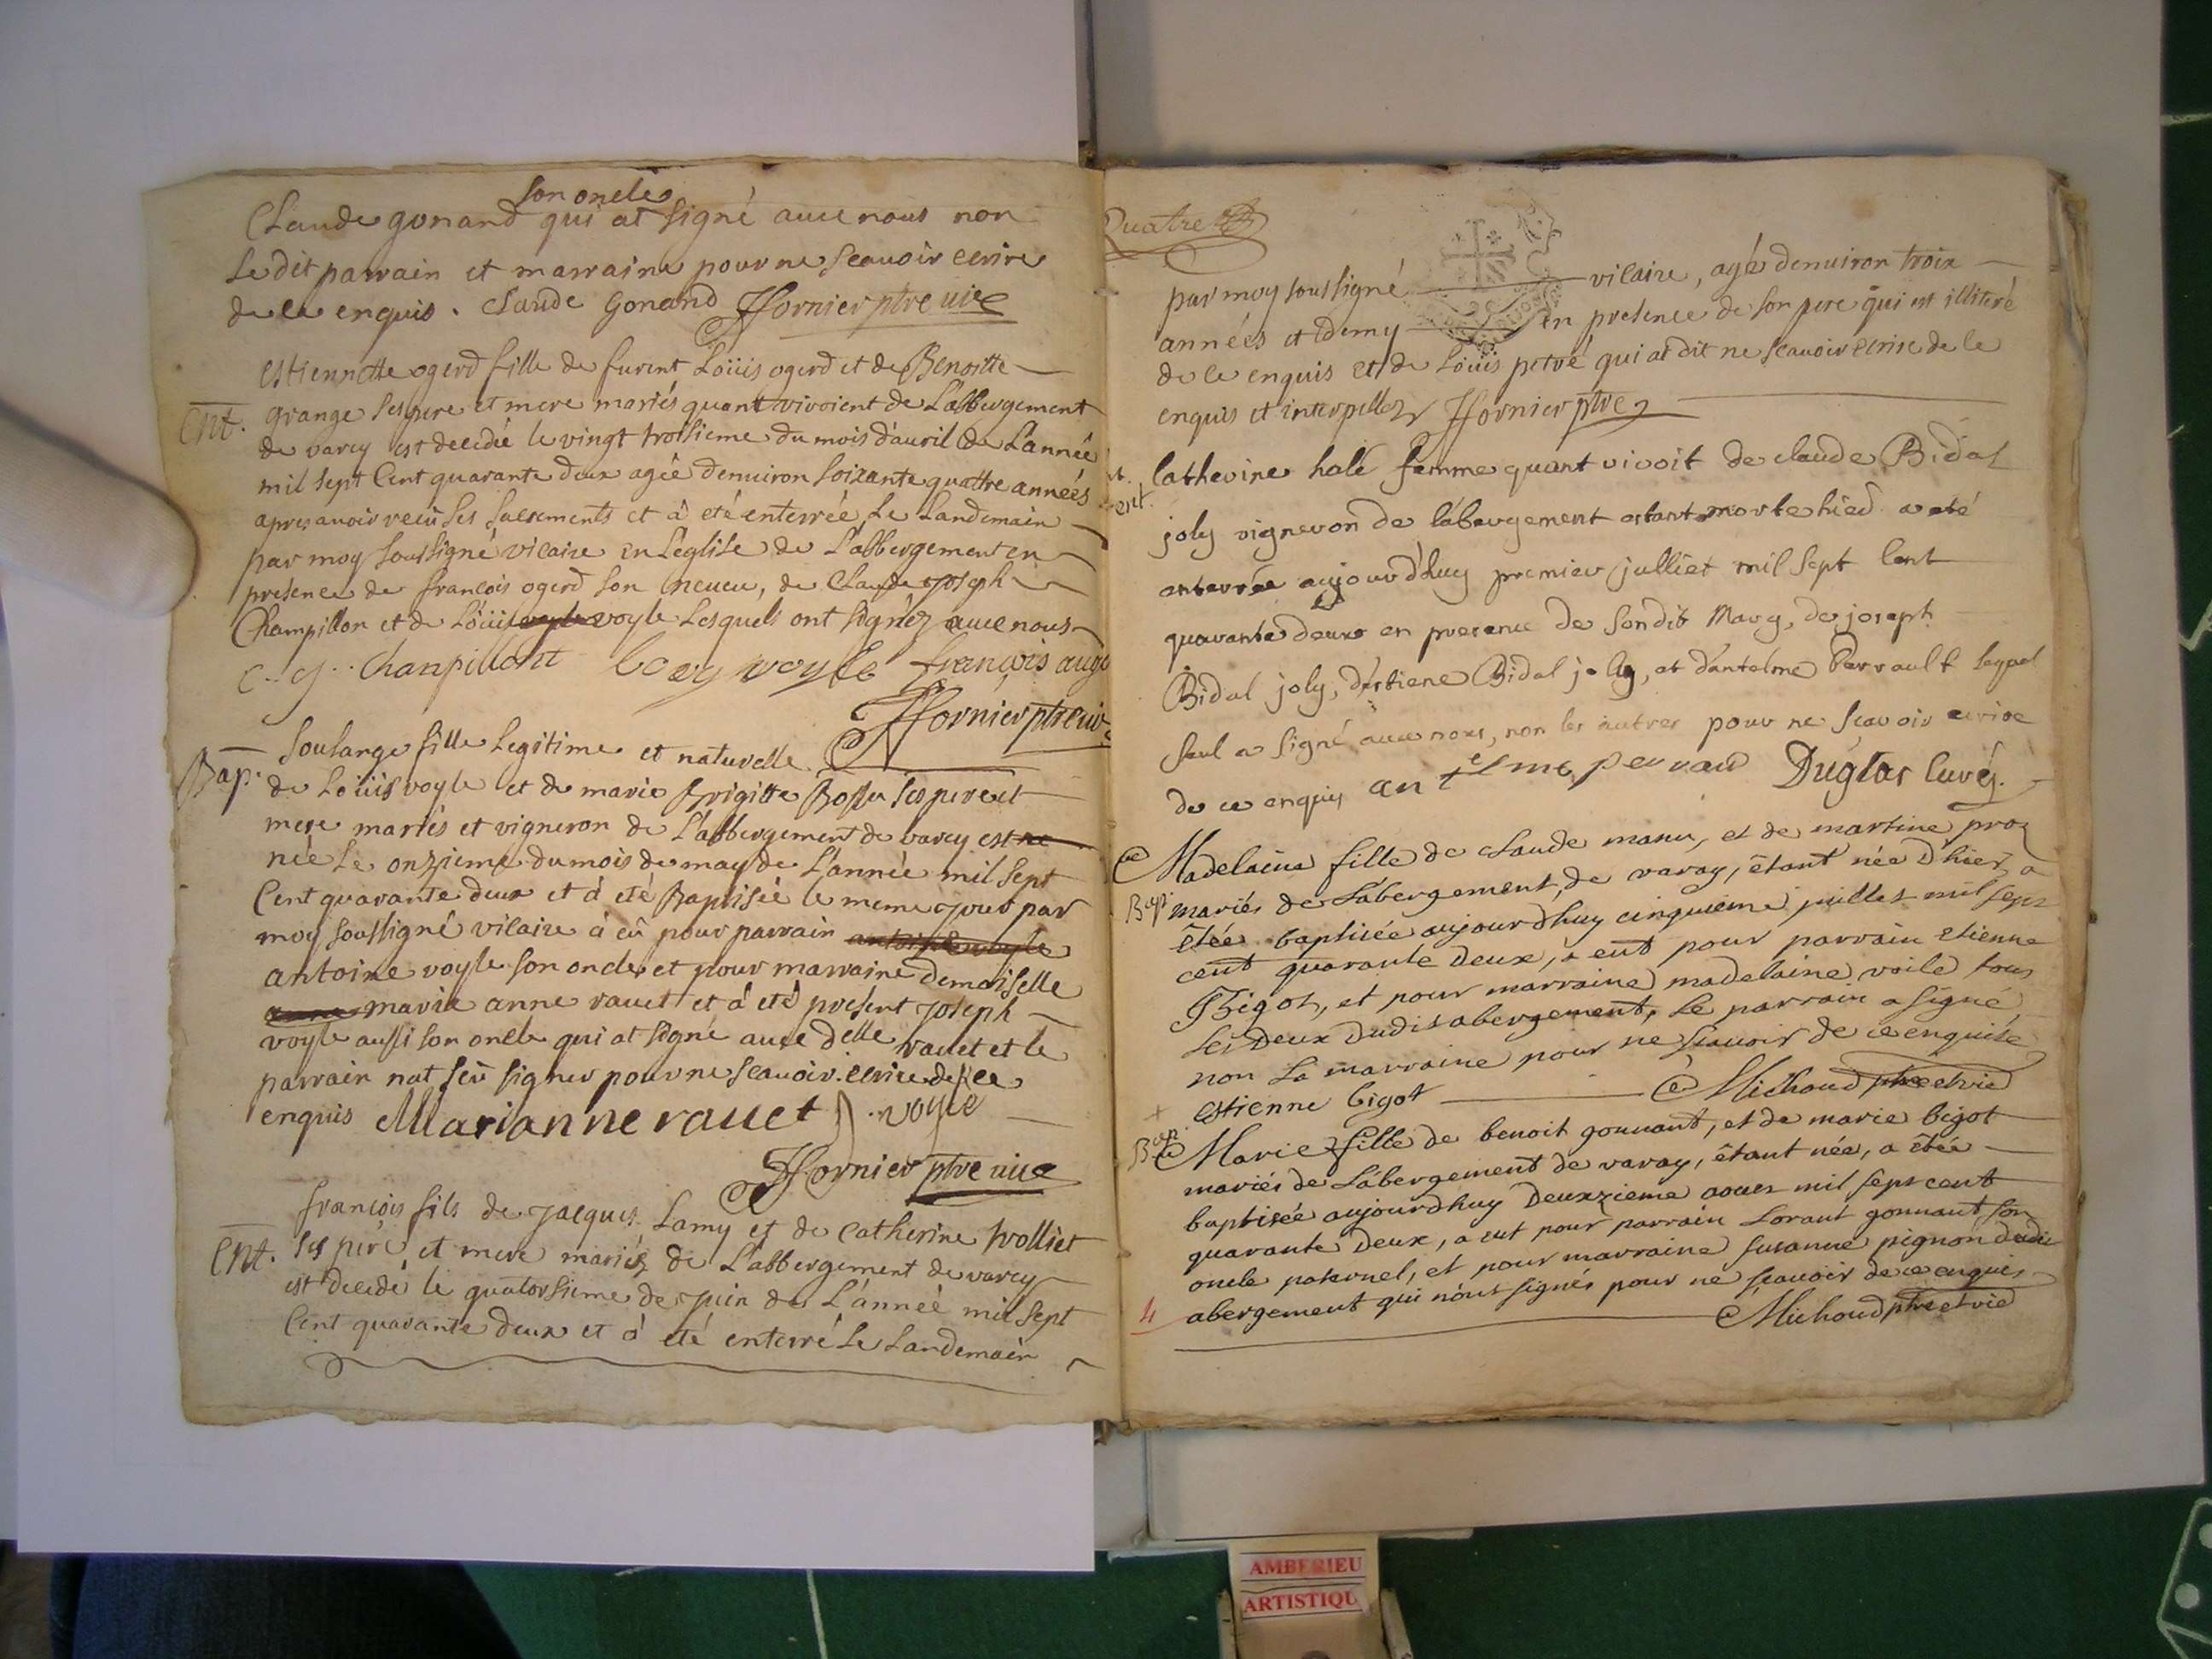 son oncle
Claude gonand qui at signé avec nous non
le dit parrain et marraine pour ne scavoir ecrire
de ce enquis. Claude Gonand Hornier ptre vice
estiennette ogerd fille de furent Loüis ogerd et de Benoitte
Ent. grange ses pere et mere mariés quant vivoient de L'abbergement
de varey est decedée le vingt troisieme du mois d'avril de L'année
mil sept Cent quarante deux agée denviron soixante quattre années
apres avoir reciï ses sacrements et à eté enterrée le Landemain
par moy soussigné vicaire en L'eglise de L'abbergement en
presence de francois ogerd son neveu, de Claude Joseph
Champillon et de Loüis voyle Lesquels ont signéz avec nous
C. J. Chanpillont Louy voyle françois auge
Hornier ptre vic
Soulange fille Legitime et naturelle
Bap. de Loüis voyle et de marie Brigitte Bossu ses pere et
mere mariés et vigneron de L'abbergement de varey est ne
née le onzieme du mois de may de L'année mil sept
Cent quarante deux et à eté Baptisée le meme jour par
moy soussigné vicaire à eû pour parrain antoine voyle
antoine voyle son oncle et pour marraine demoiselle
anne marie anne ravet et à eté present Joseph
voyle aussi son oncle qui at signé avec delle ravet et le
parrain nat seû signer pour ne scavoir ecrire de ce
enquis Marianne rauet J. voyle
Hornier ptre vice
francois fils de Jacques Lamy et de Catherine trolliet
Ent. ses pere et mere mariéz de L'abbergement de varey
est decedé le quatorsieme de juin de L'année mil sept
Cent quarante deux et à eté enterré le Landemain
Quatre
par moy soussigné vicaire, agé denviron troix
années et demy en presence de son pere qui est illiteré
de ce enquis et de Loüis petré qui at dit ne scavoir ecrire de ce
enquis et interpellez Hornier ptre
Catherine halé femme quant vivoit de claude Bidal
ent. joly vigneron de labergement estant morte hied a eté
enterrée aujourd'huy premier julliet mil sept Cent
quarante deux en presence de sondit Mary, de joseph
Bidal joly, d'estiene Bidal joly, et d'antelme Perrault lequel
seul a signé avec nous, non les autres pour ne scavoir ecrire
de ce enquis antelme peuraud Duglas Curé.
Madelaine fille de claude manu, et de martine proz
Bap. mariés de Labergement, de varay, êtant née d'hier, a
êtée baptisée aujourdhuy cinquieme juillet mil sept
cent quarante deux, a eut pour parrain etienne
Bigot, et pour marraine madelaine voile tous
les deux dudit abergement, le parrain a signé
non la marraine pour ne scavoir de ce enquise
estienne bigot Michoud ptre et vic
Bap. Marie fille de benoit gonnant, et de marie bigot
mariés de Labergement de varay, êtant née, a êtée
baptisée aujourdhuy deuxzieme aoust mil sept cent
quarante deux, a eut pour parrain Lorant gonnant son
oncle paternel, et pour marraine susanne pignon dudit
4 abergement qui n'ont signés pour ne scavoir de ce enquis
Michoud ptre et vic
AMBERIEU
ARTISTIQU